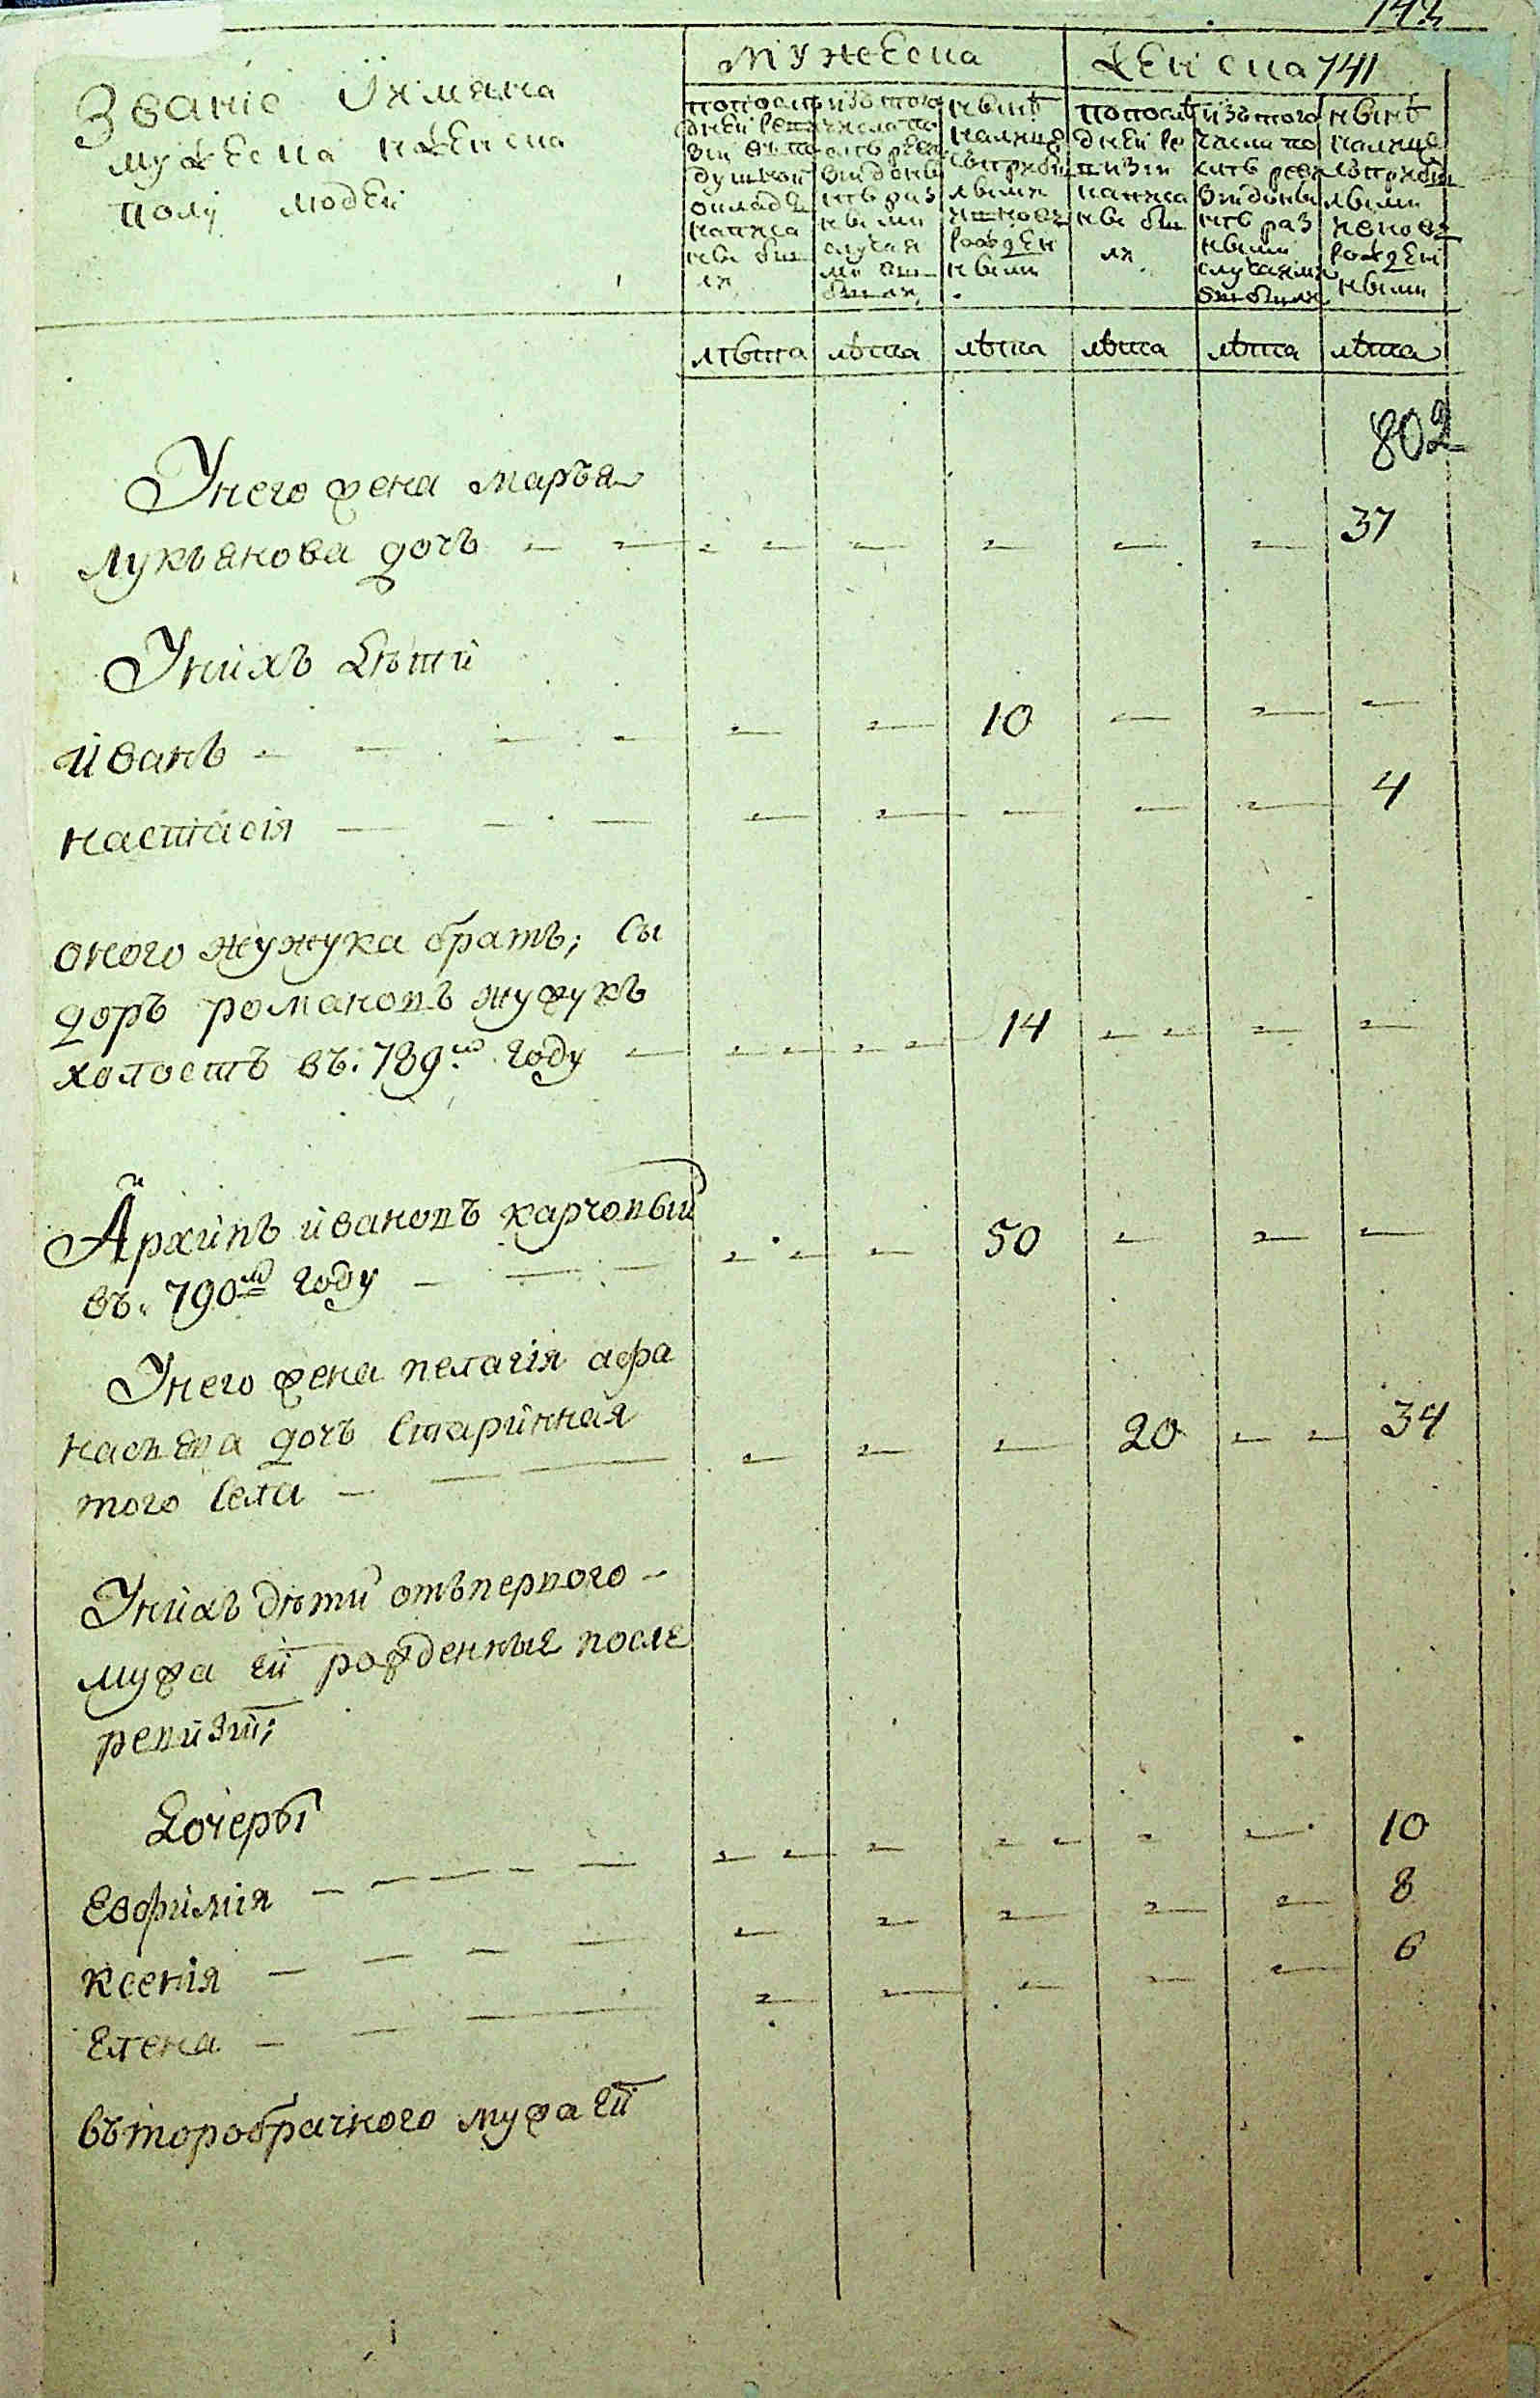 Званіе Иимяна
мужеска иженска
полу людей
мужеска
женска 741
попослѣдней ревизіи въ подушной окладъ написаны были
изъ того числа по сіть ревизіи до ныне разными случаями выбыли
ныне налицо съ прибылыми и новорожденными
попослѣдней ревизіи написаны были
изъ того числа по сіть ревизіи до ныне разными случаями выбыли
ныне налицо съ прибылыми и новорожденными
лѣта лѣта лѣта лѣта лѣта лѣта
802
Унего жена марья
лукъянова дочъ 37
Унихъ дѣти
иванъ 10
настасія 4
оного жужука братъ; Сы
доръ романовъ жужукъ
холостъ въ: 789м году 14
Архипъ ивановъ карчовый
въ: 790м году 50
Унего жена пелагія афа
насьева дочъ Старинная
того Села 20 34
Унихъ дѣти отъ первого
мужа ей рожденные после
ревизіи;
Дочеры
Евфимія 10
Ксенія 8
Елена 6
въторобрачного мужа ей